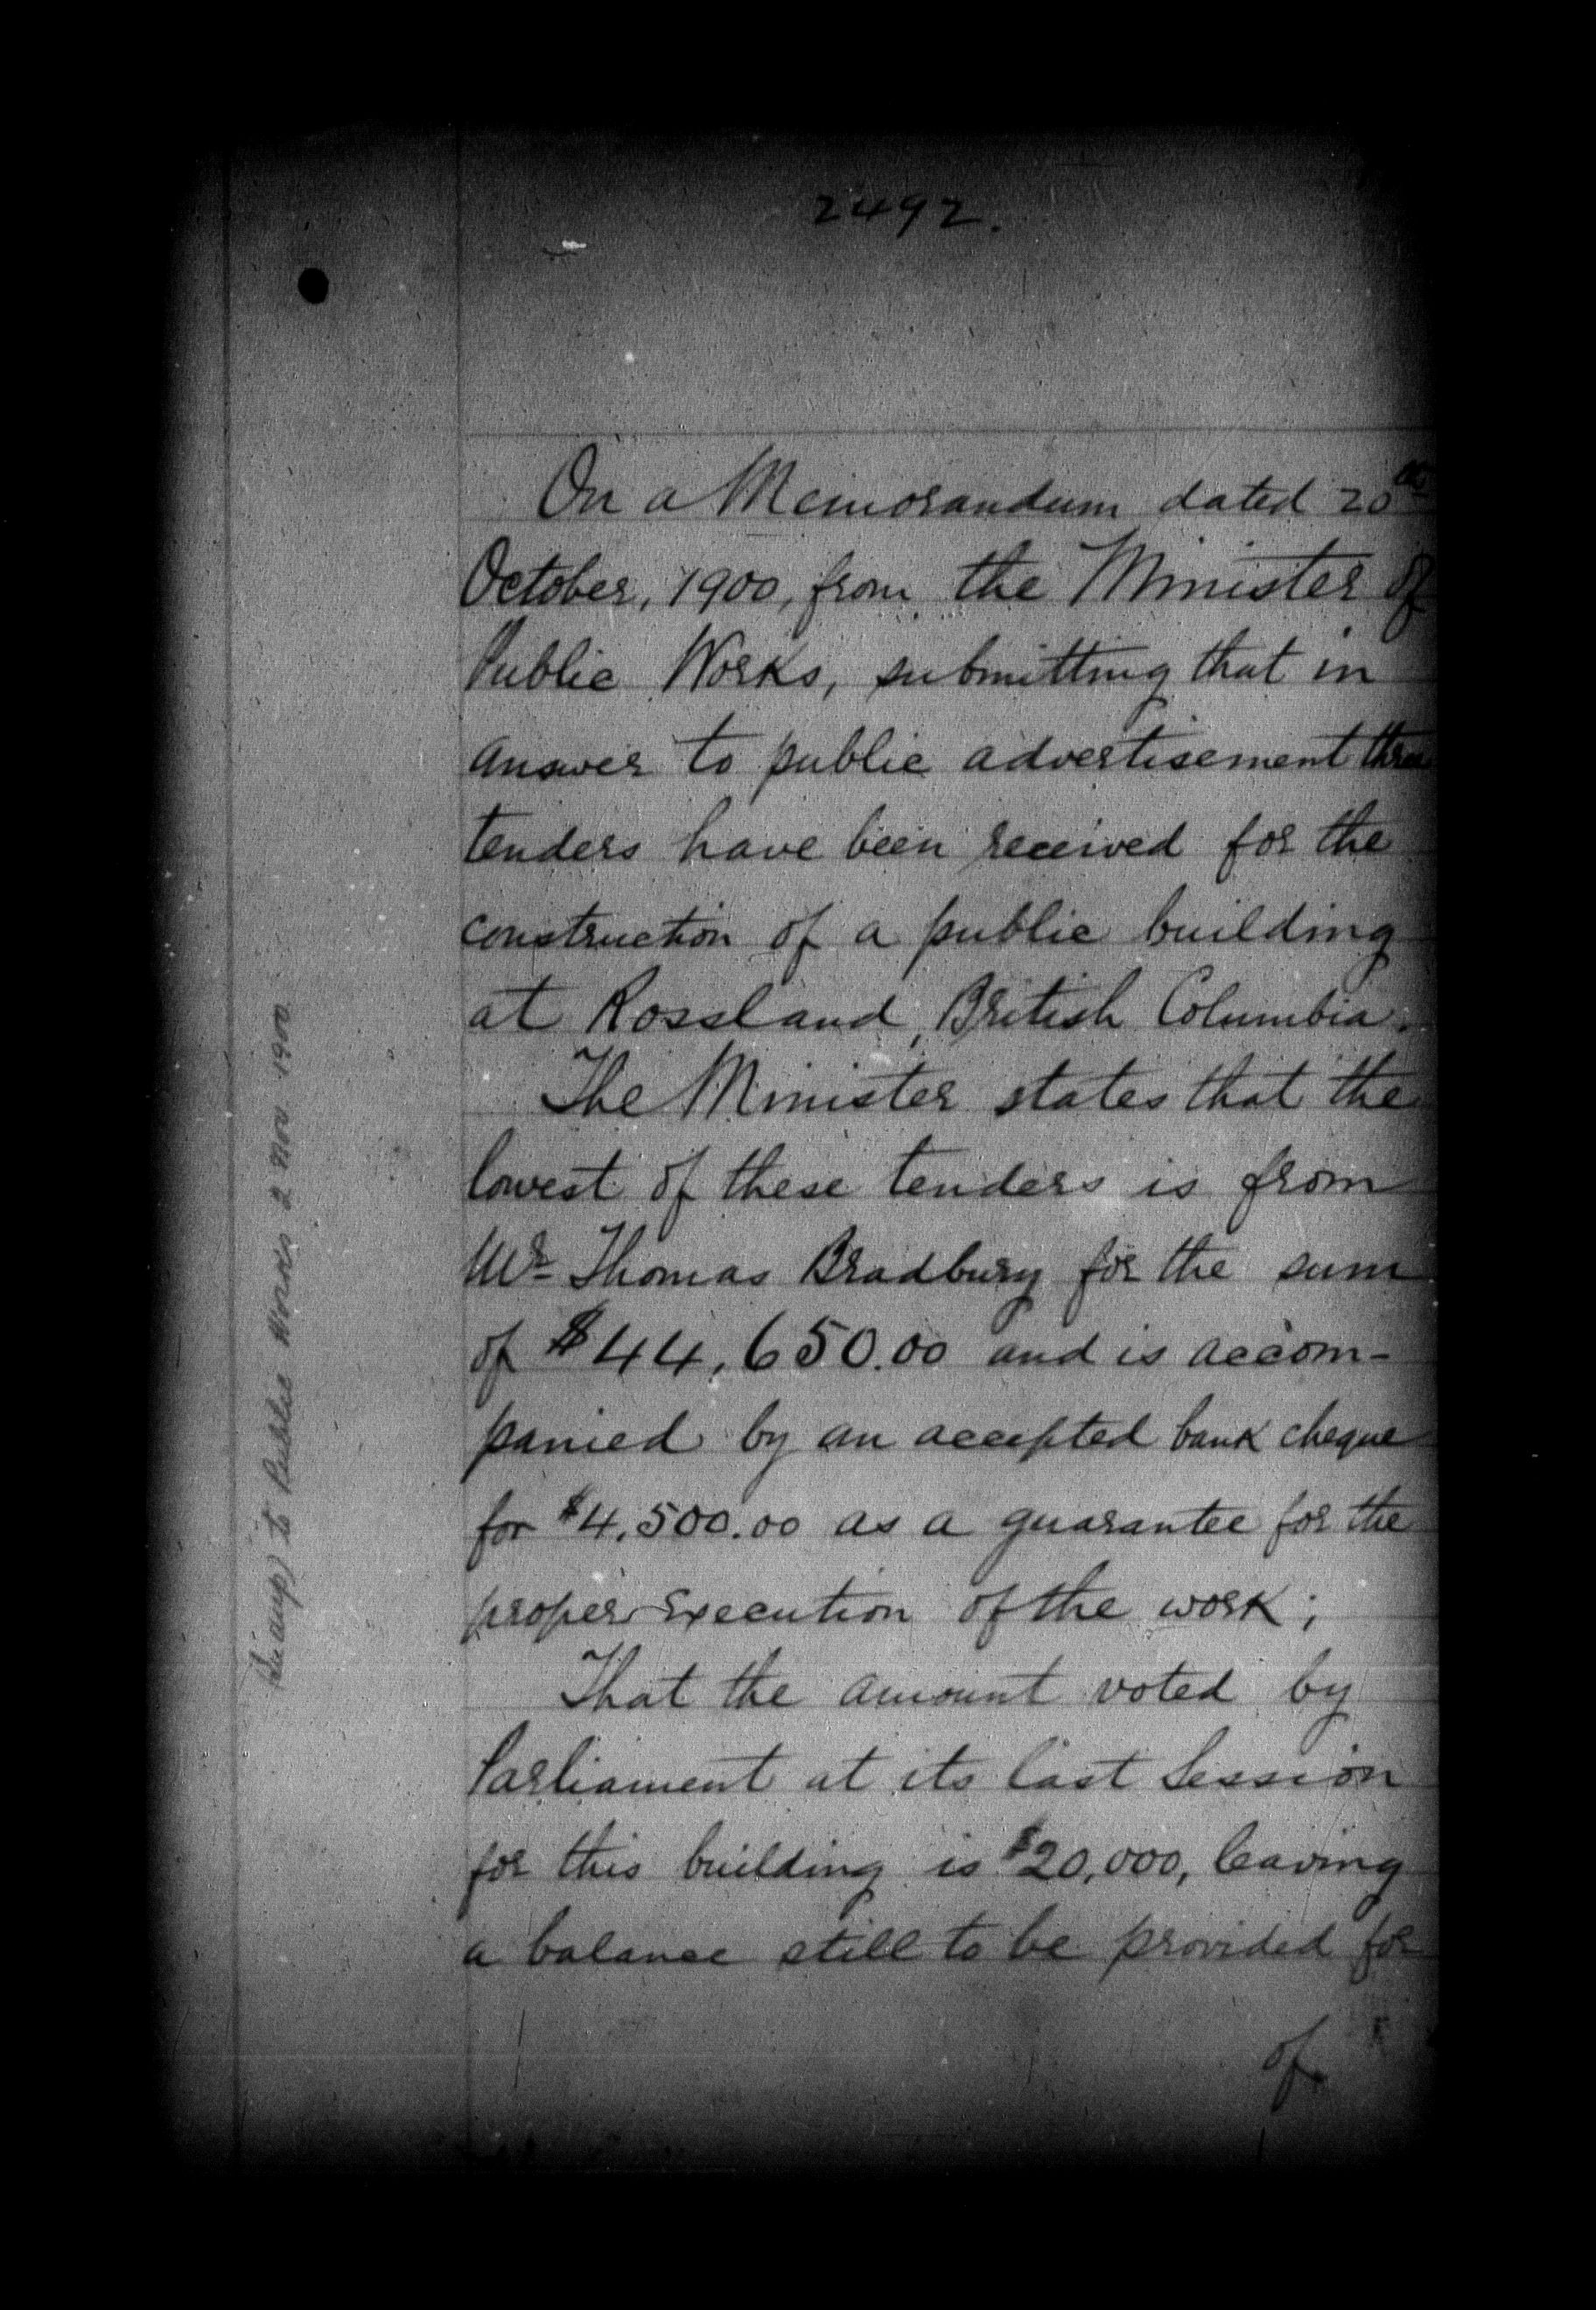 2492.
On a Memorandum dated 20th
October, 1900, from the Minister of
Public Works, submitting that in
answer to public advertisement three
tenders have been received for the
construction of a public building
at Rossland, British Columbia.
The Minister states that the
lowest of these tenders is from
Mr Thomas Bradbury for the sum
of $44,650.00 and is accom-
panied by an accepted bank cheque
for $4,500.00 as a guarantee for the
proper execution of the work;
That the amount voted by
Parliament at its last Session
for this building is $20,000, leaving
a balance still to be provided for
of
to Public Works 2 Nov 1900